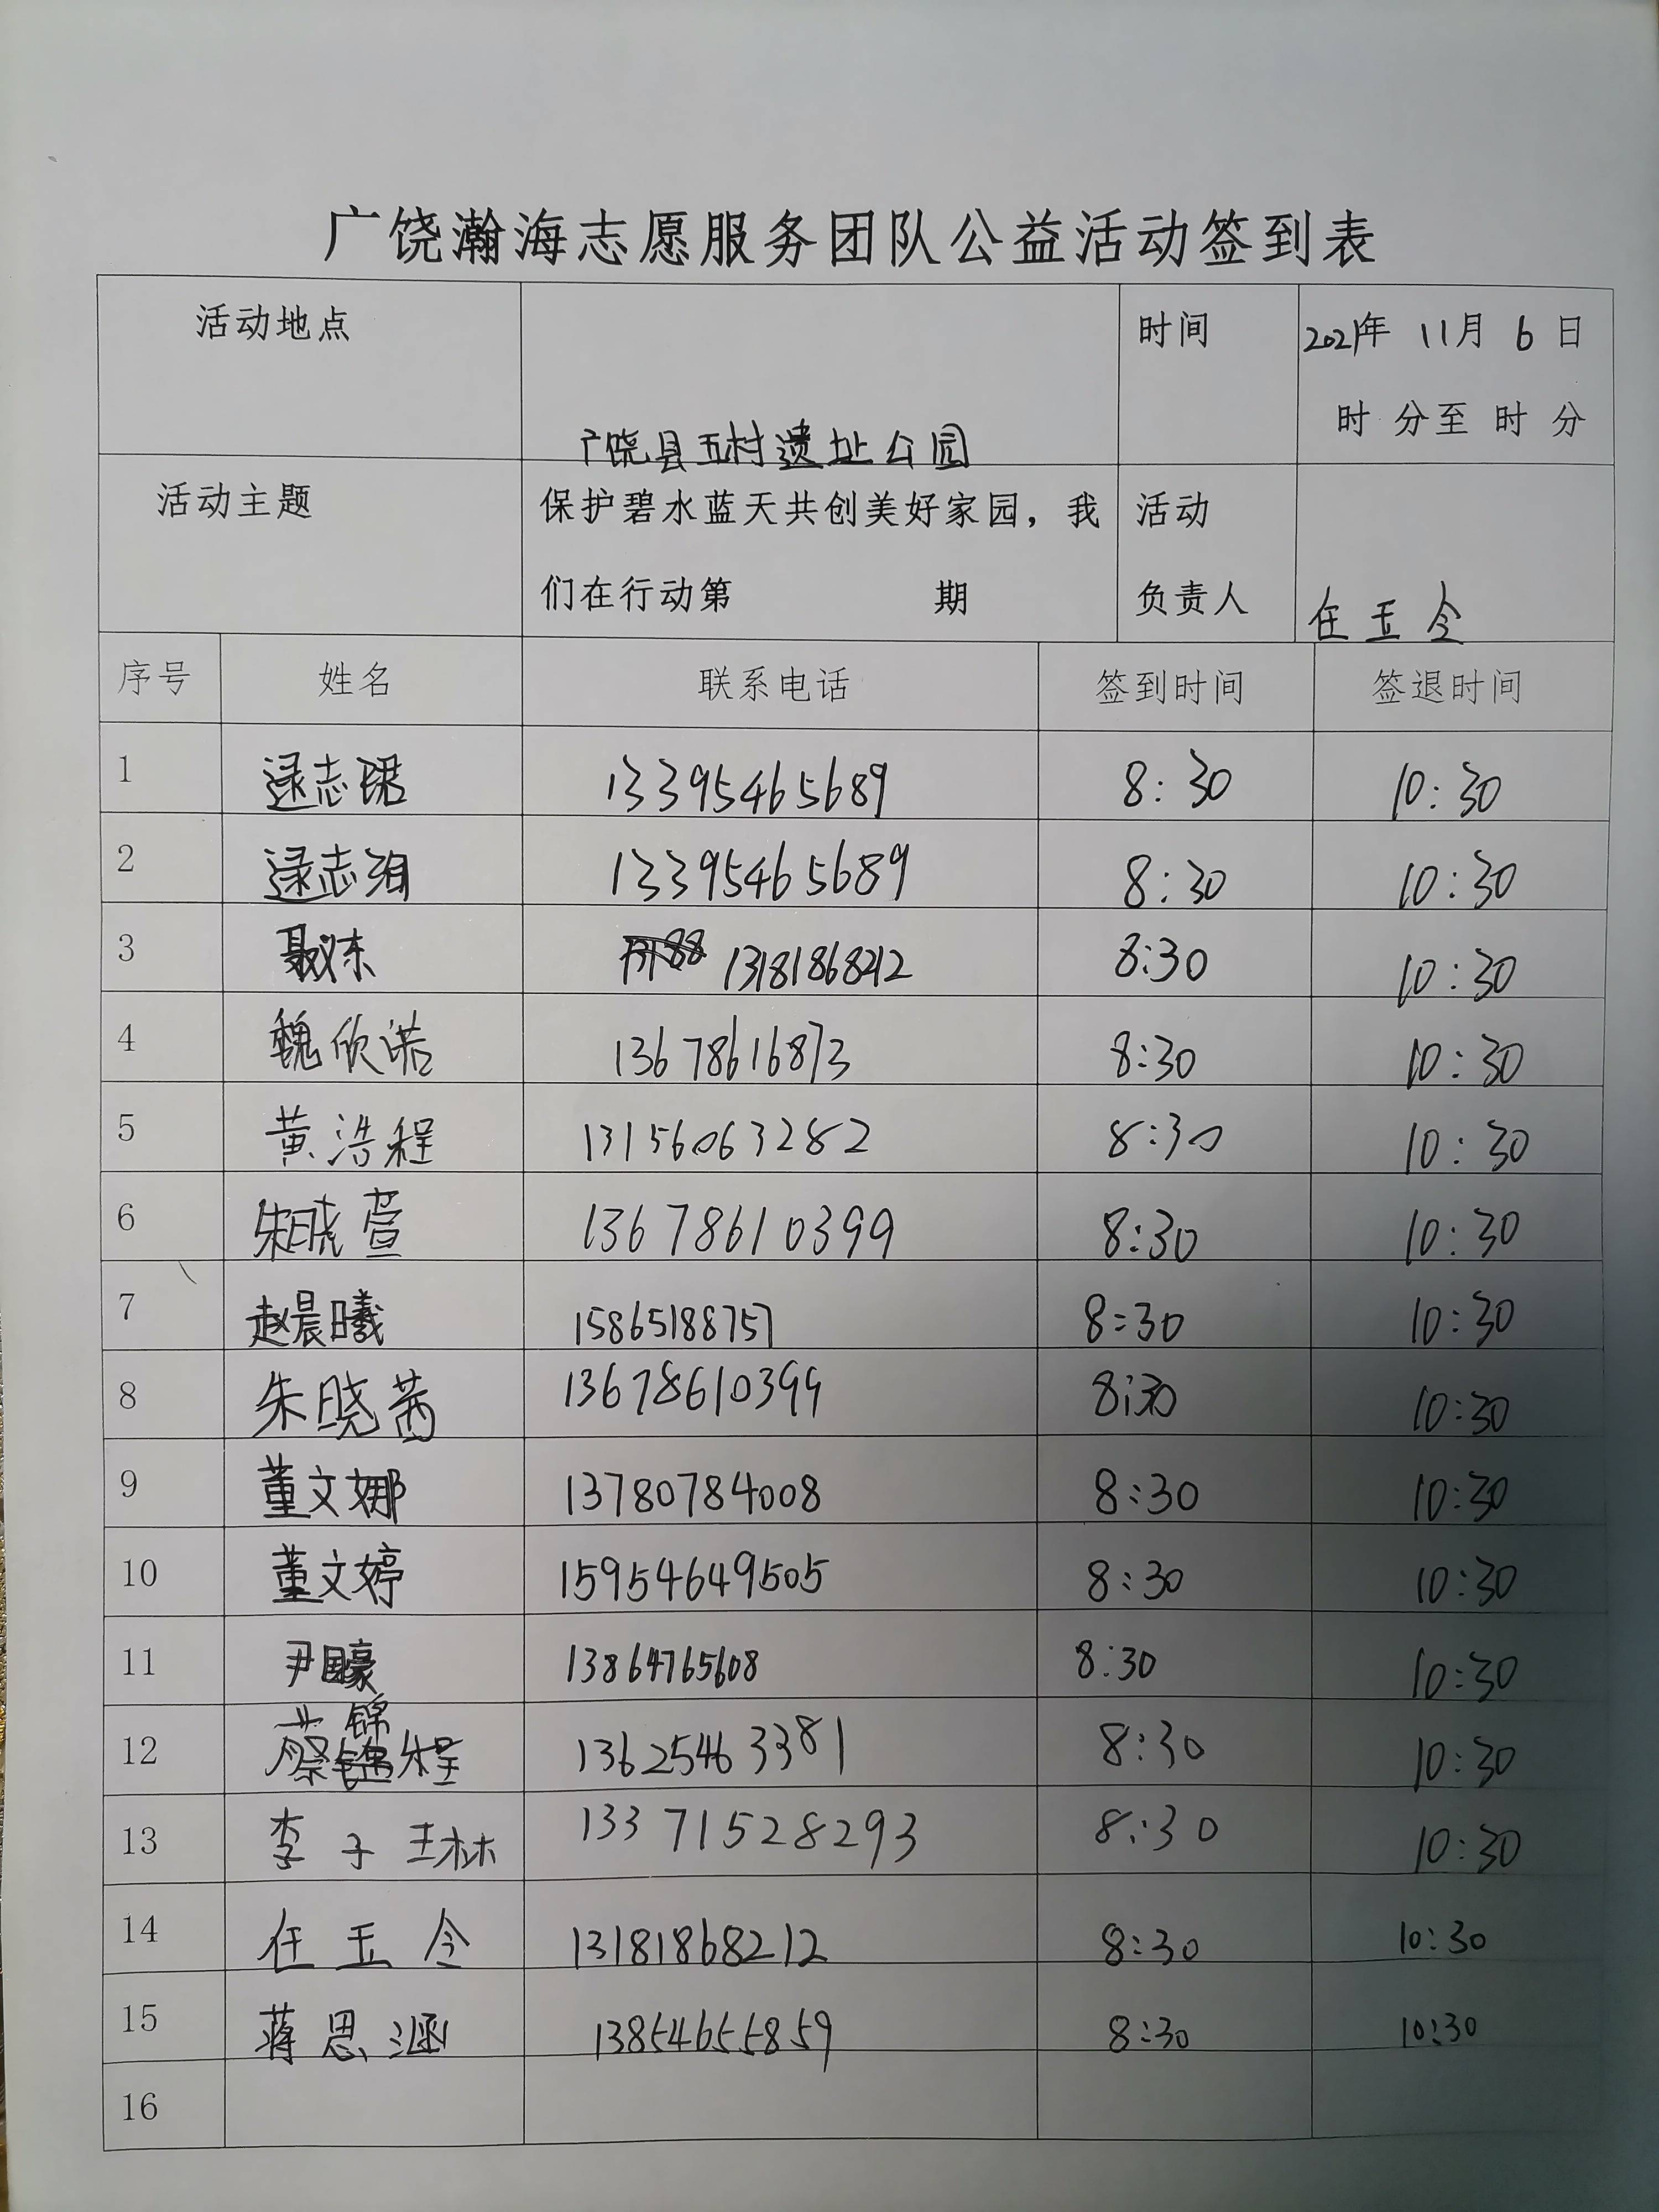 广饶瀚海志愿服务团队公益活动签到表
活动地点 广饶县五村遗址公园 时间 2021年 11月 6日
时 分至 时 分
活动主题 保护碧水蓝天共创美好家园，我 活动
们在行动第 期 负责人 任玉令
序号 姓名 联系电话 签到时间 签退时间
1 逯志珺 13395465689 8:30 10:30
2 逯志洵 13395465689 8:30 10:30
3 聂义东 13181868212 8:30 10:30
4 魏欣诺 13678616873 8:30 10:30
5 黄浩程 13156063282 8:30 10:30
6 朱晓萱 13678610399 8:30 10:30
7 赵晨曦 15865188757 8:30 10:30
8 朱晓茜 13678610399 8:30 10:30
9 董文娜 13780784008 8:30 10:30
10 董文婷 15954649505 8:30 10:30
11 尹国豪 13864765608 8:30 10:30
12 蔡锦程 13625463381 8:30 10:30
13 李子琳 13371528293 8:30 10:30
14 任玉令 13181868212 8:30 10:30
15 蒋思涵 13854655859 8:30 10:30
16